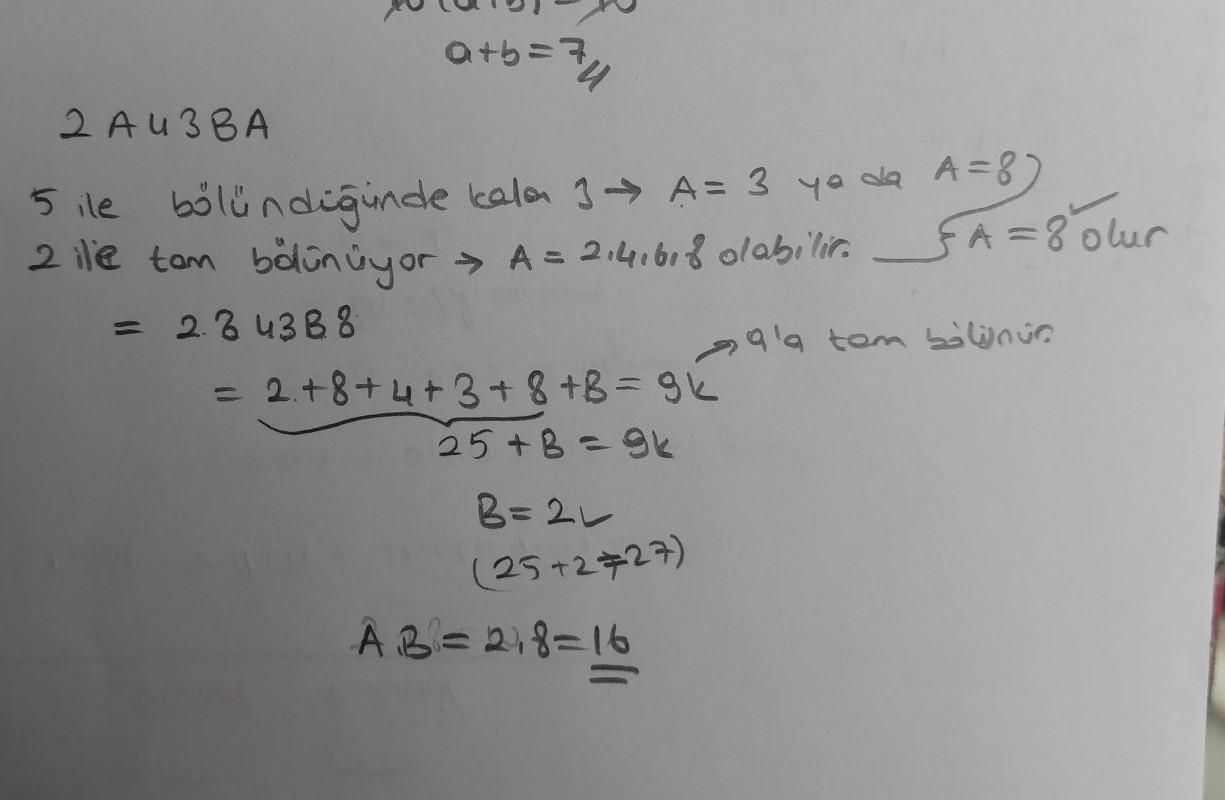 a+b=7
2A43BA
5 ile bölündüğünde kalan 3 → A = 3 ya da A=8
2 ile tam bölünüyor → A = 2,4,6,8 olabilir. } A = 8 olur
= 2 8 43B8
→ 9'a tam bölünür.
= 2+8+4+3+8+B = 9k
25 + B = 9k
B = 2
(25+2=27)
A.B = 2.8 = 16